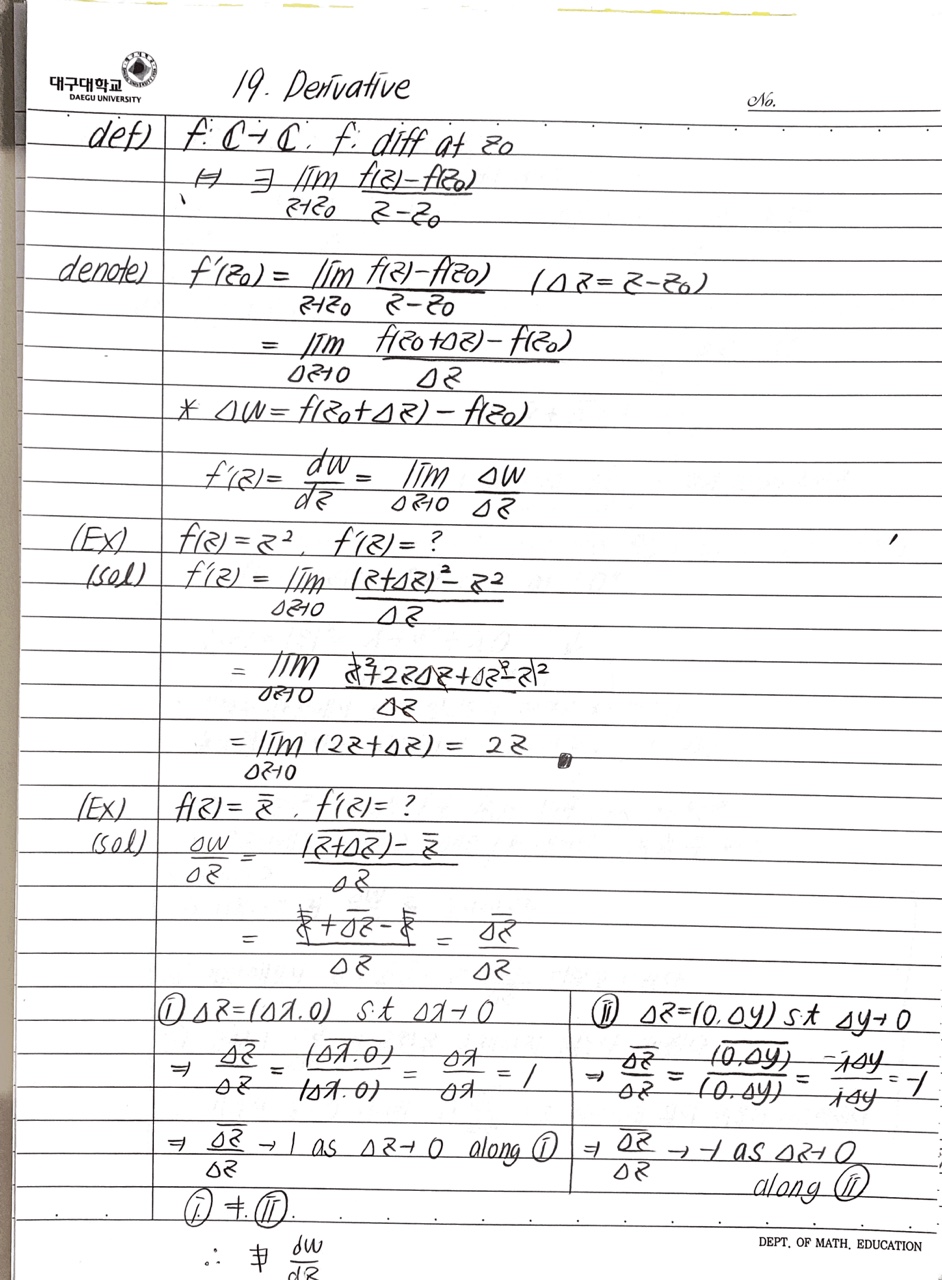 대구대학교
DAEGU UNIVERSITY
19. Derivative
No.
def) f: ℂ→ℂ. f: diff at z₀
⇔ ∃ lim_{z→z₀} (f(z)-f(z₀))/(z-z₀)
denote) f'(z₀) = lim_{z→z₀} (f(z)-f(z₀))/(z-z₀) (Δz = z-z₀)
= lim_{Δz→0} (f(z₀+Δz)-f(z₀))/Δz
* Δw = f(z₀+Δz) - f(z₀)
f'(z) = dw/dz = lim_{Δz→0} Δw/Δz
(Ex) f(z) = z², f'(z) = ?
(sol) f'(z) = lim_{Δz→0} ((z+Δz)² - z²)/Δz
= lim_{Δz→0} (z²+2zΔz+Δz²-z²)/Δz
= lim_{Δz→0} (2z+Δz) = 2z ∎
(Ex) f(z) = z̅. f'(z) = ?
(sol) Δw/Δz = (\overline{(z+Δz)} - z̅)/Δz
= (z̅ + \overline{Δz} - z̅)/Δz = \overline{Δz}/Δz
ⓘ Δz = (Δx.0) s.t Δx→0
⇒ \overline{Δz}/Δz = \overline{(Δx.0)}/(Δx.0) = Δx/Δx = 1
⇒ \overline{Δz}/Δz → 1 as Δz→0 along ⓘ
ⓘⓘ Δz = (0.Δy) s.t Δy→0
⇒ \overline{Δz}/Δz = \overline{(0.Δy)}/(0.Δy) = -iΔy/iΔy = -1
⇒ \overline{Δz}/Δz → -1 as Δz→0
along ⓘⓘ
ⓘ ≠ ⓘⓘ.
∴ ∄ dw/dz
DEPT. OF MATH. EDUCATION